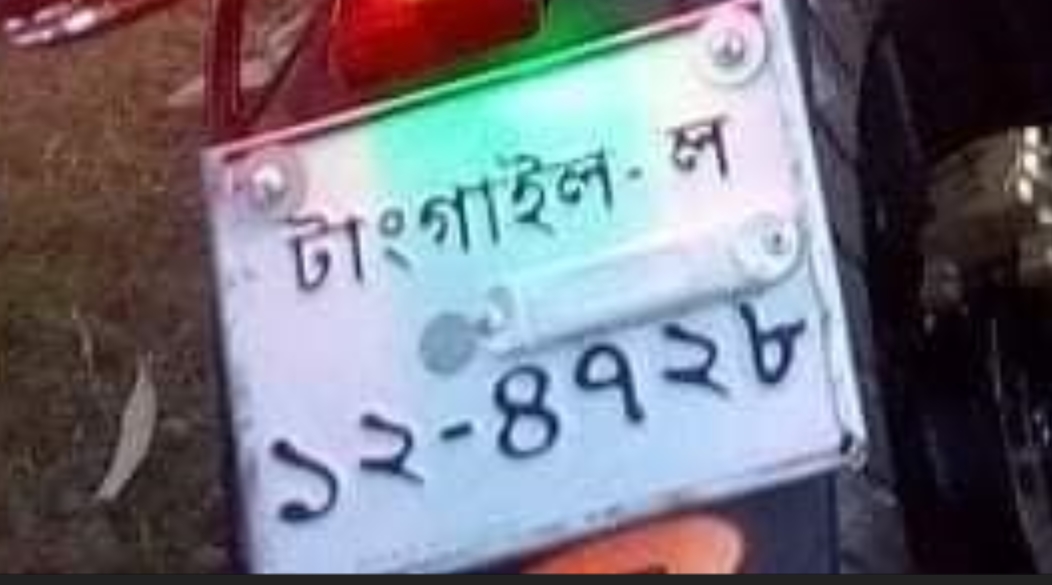 টাংগাইল-ল
১২-৪৭২৮